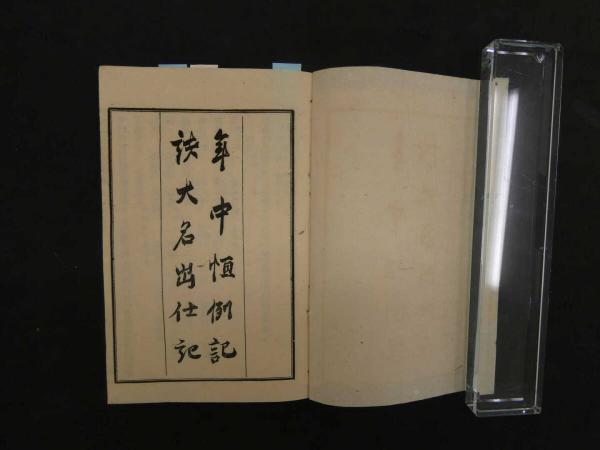 年中恒例記
諸大名出仕記